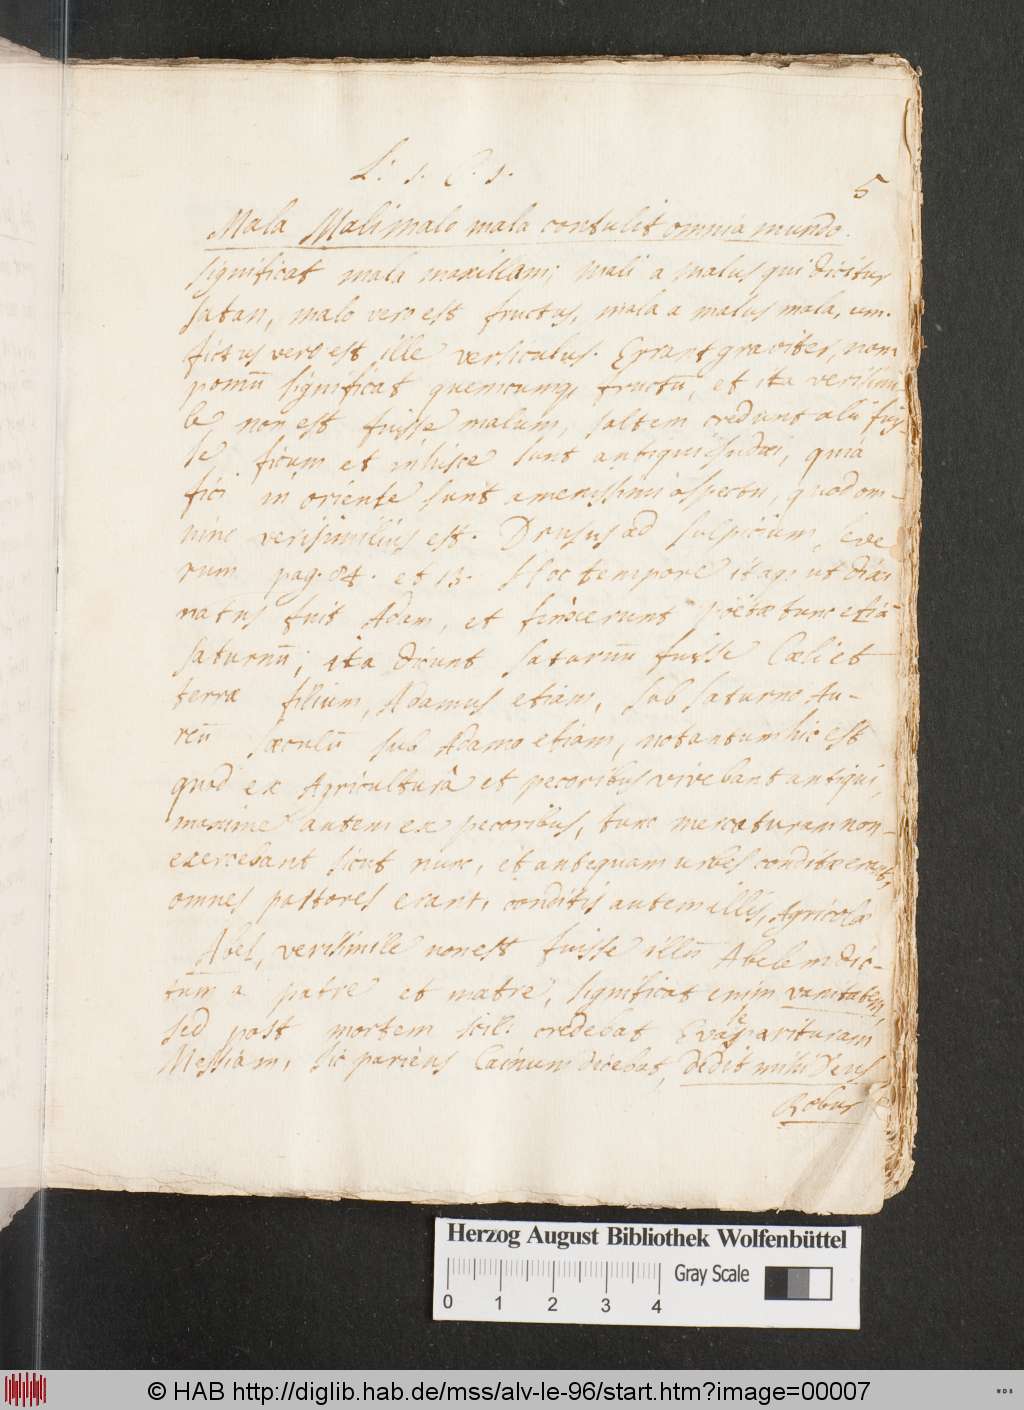 L: 1. C. 1.
5
Mala Mali malo mala contulit omnia mundo.
significat mala maxillam; mali a malus qui dicitur
satan, malo vero est fructus, mala a malus mala, um.
fictus vero est ille versiculus. Errant graviter, nam
pomū significat quemcumq, fructū, et ita verisimi
le non est fuisse malum, saltem credunt alii fuis-
se ficum et in hisce sunt antiqui Judæi, quia
fici in oriente sunt amenissimi aspectu, quod om-
nino verisimilius est. Drusus ad Sulpicium, Seve
rum pag. 84. et 13. Hoc tempore itaq, ut dixi
natus fuit Adam, et finxerunt Poëtæ tunc etiā
saturnū; ita dicunt saturnū fuisse Cæli et
terræ filium, Adamus etiam, sub saturno Au-
reū sæculū sub Adamo etiam, notantum hic est
quod ex Agriculturâ et pecoribus vivebant antiqui,
maxime autem ex pecoribus, tunc mercaturam non-
exercebant sicut nunc, et antequam urbes conditæ erant,
omnes pastores erant, conditis autem illis, Agricolæ
Abel, verisimile non est fuisse illū Abelem dic-
tum a patre et matre, significat enim vanitatem,
sed post mortem scil: credebat Eva se parituram
Messiam, sic pariens Cainum dicebat, dedit mihi Deus
Robur
Herzog August Bibliothek Wolfenbüttel
0 1 2 3 4
Gray Scale
© HAB http://diglib.hab.de/mss/alv-le-96/start.htm?image=00007